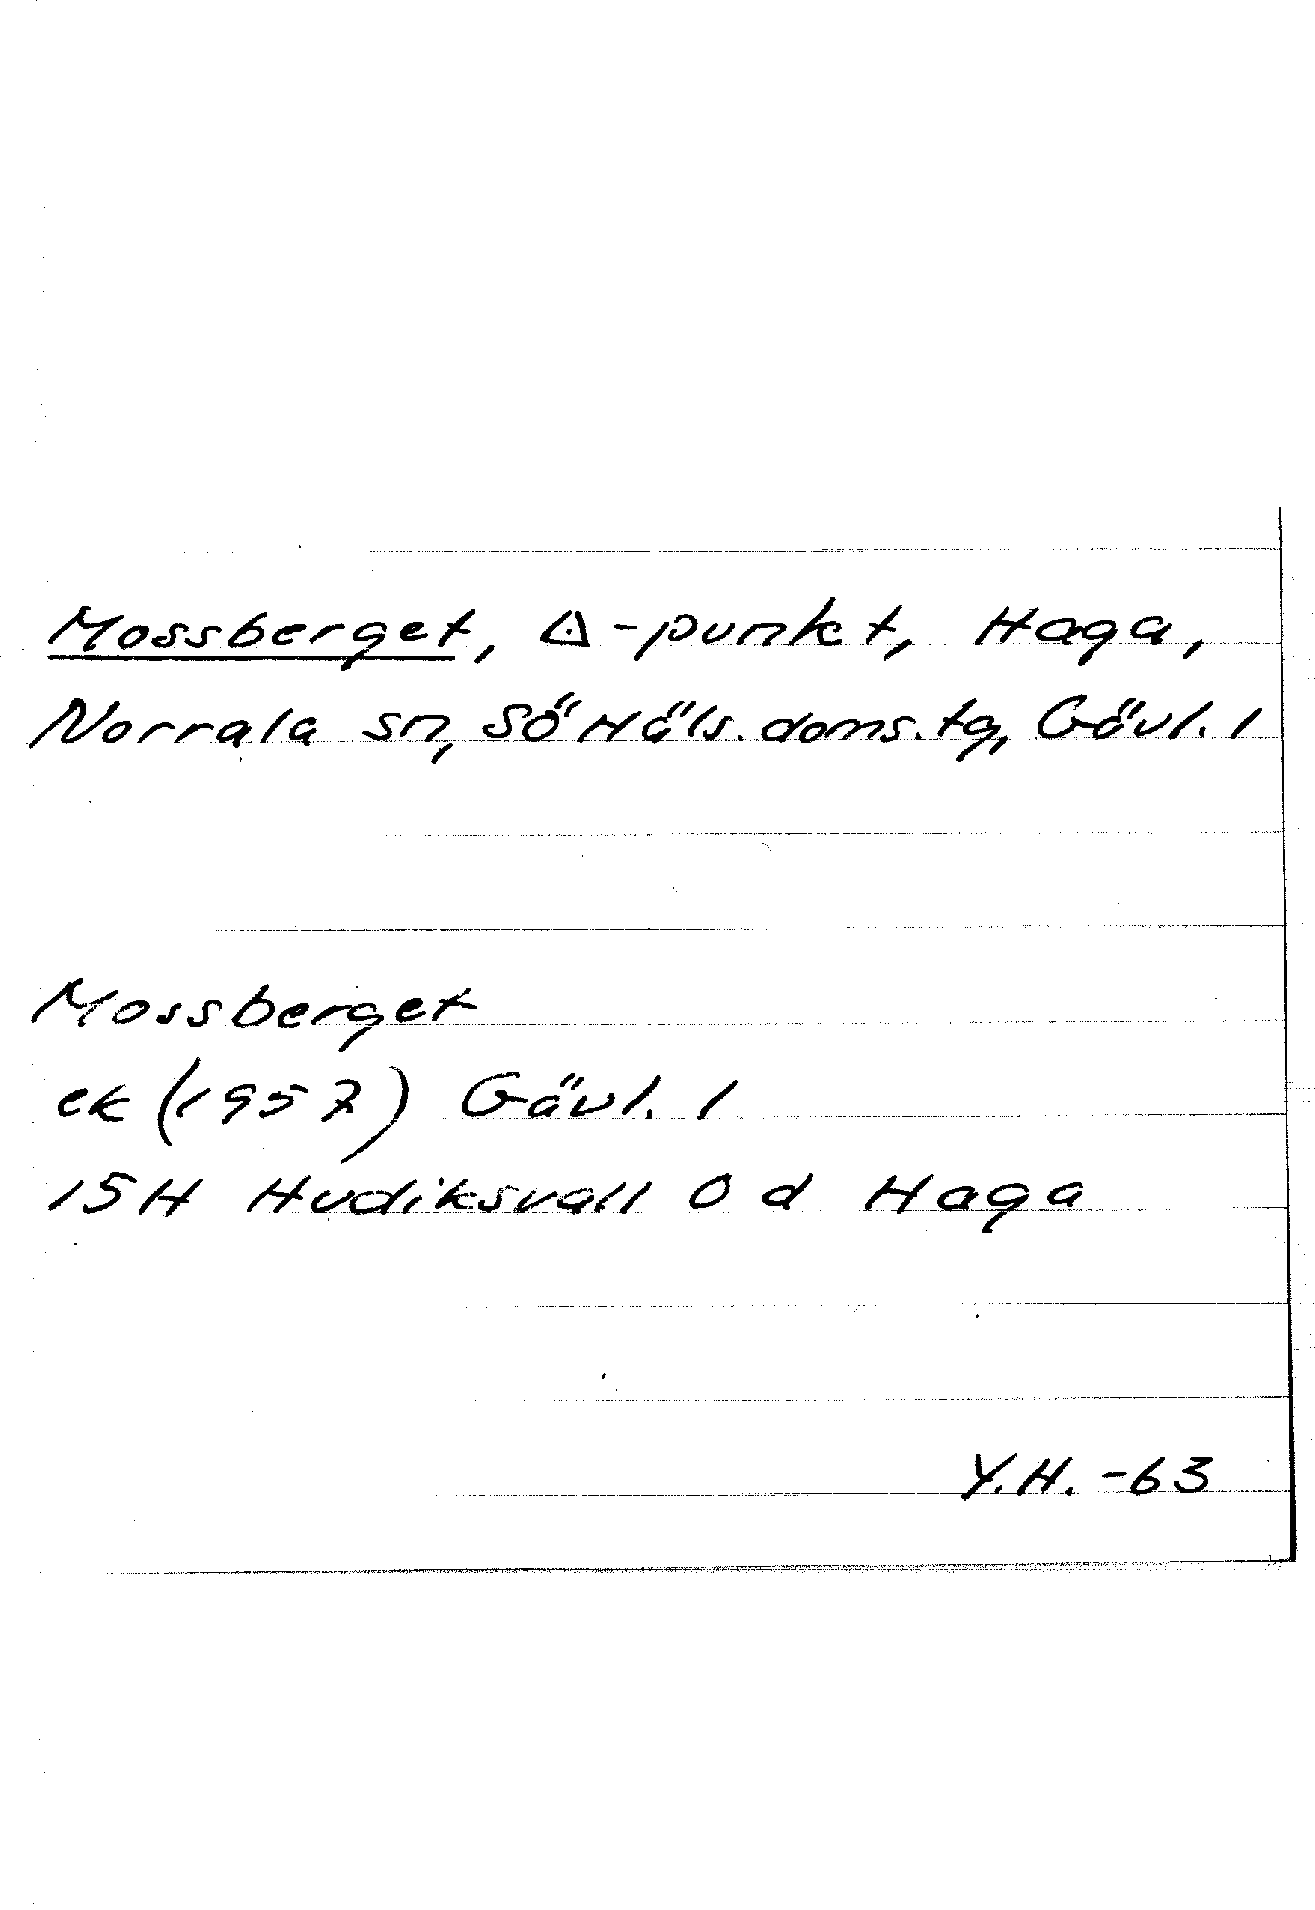 Mossberget, △-punkt, Haga,
Norrala sn, Sö Häls. doms. tg, Gävl. l
Mossberget
ek (1957) Gävl. l
15H Hudiksvall 0 d Haga
Y.H. -63